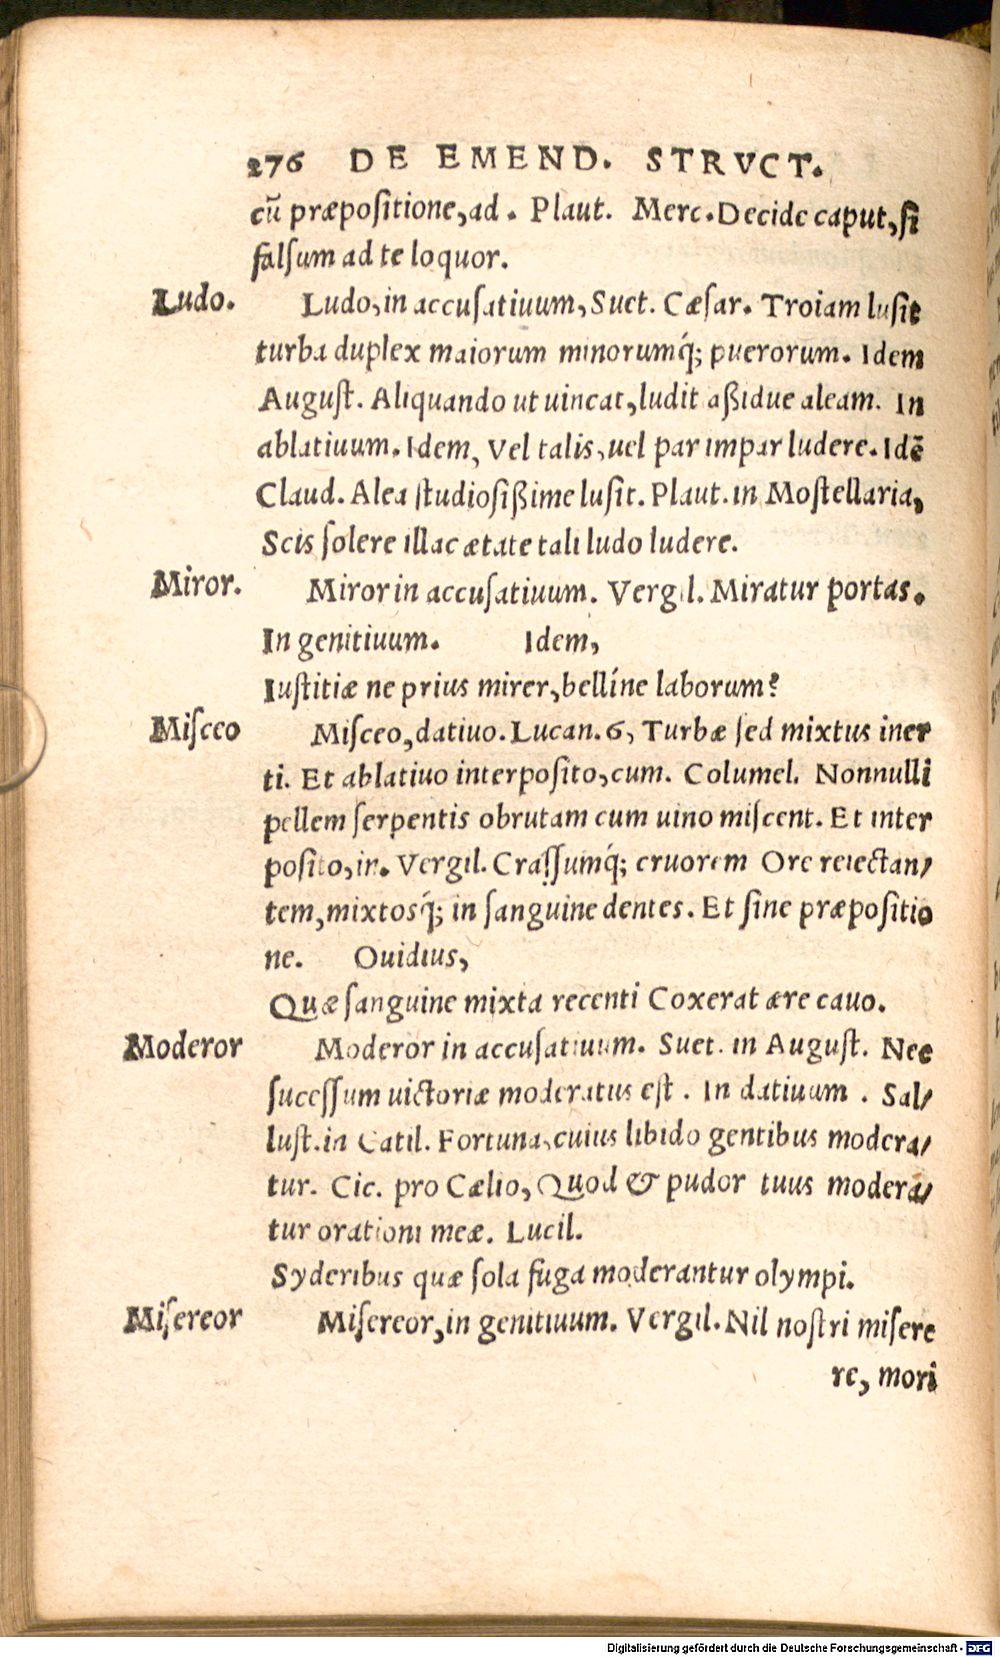 276 DE EMEND. STRVCT.
cū præpositione, ad. Plaut. Merc. Decide caput, si
falsum ad te loquor.
Ludo. Ludo, in accusatiuum, Suet. Cæsar. Troiam lusit
turba duplex maiorum minorumq́; puerorum. Idem
August. Aliquando ut uincat, ludit aßidue aleam. In
ablatiuum. Idem, Vel talis, uel par impar ludere. Idē
Claud. Alea studiosißime lusit. Plaut. in Mostellaria,
Scis solere illac ætate tali ludo ludere.
Miror. Miror in accusatiuum. Vergil. Miratur portas.
In genitiuum. Idem,
Iustitiæ ne prius mirer, belline laborum?
Misceo Misceo, datiuo. Lucan. 6, Turbæ sed mixtus iner
ti. Et ablatiuo interposito, cum. Columel. Nonnulli
pellem serpentis obrutam cum uino miscent. Et inter
posito, in. Vergil. Crassumq́; cruorem Ore reiectan/
tem, mixtosq́; in sanguine dentes. Et sine præpositio
ne. Ouidius,
Quæ sanguine mixta recenti Coxerat ære cauo.
Moderor Moderor in accusatiuum. Suet. in August. Nec
sucessum uictoriæ moderatus est. In datiuum. Sal/
lust. in Catil. Fortuna, cuius libido gentibus modera/
tur. Cic. pro Cælio, Quod & pudor tuus moderā/
tur orationi meæ. Lucil.
Syderibus quæ sola fuga moderantur olympi.
Misereor Misereor, in genitiuum. Vergil. Nil nostri misere
re, mori
Digitalisierung gefördert durch die Deutsche Forschungsgemeinschaft - DFG